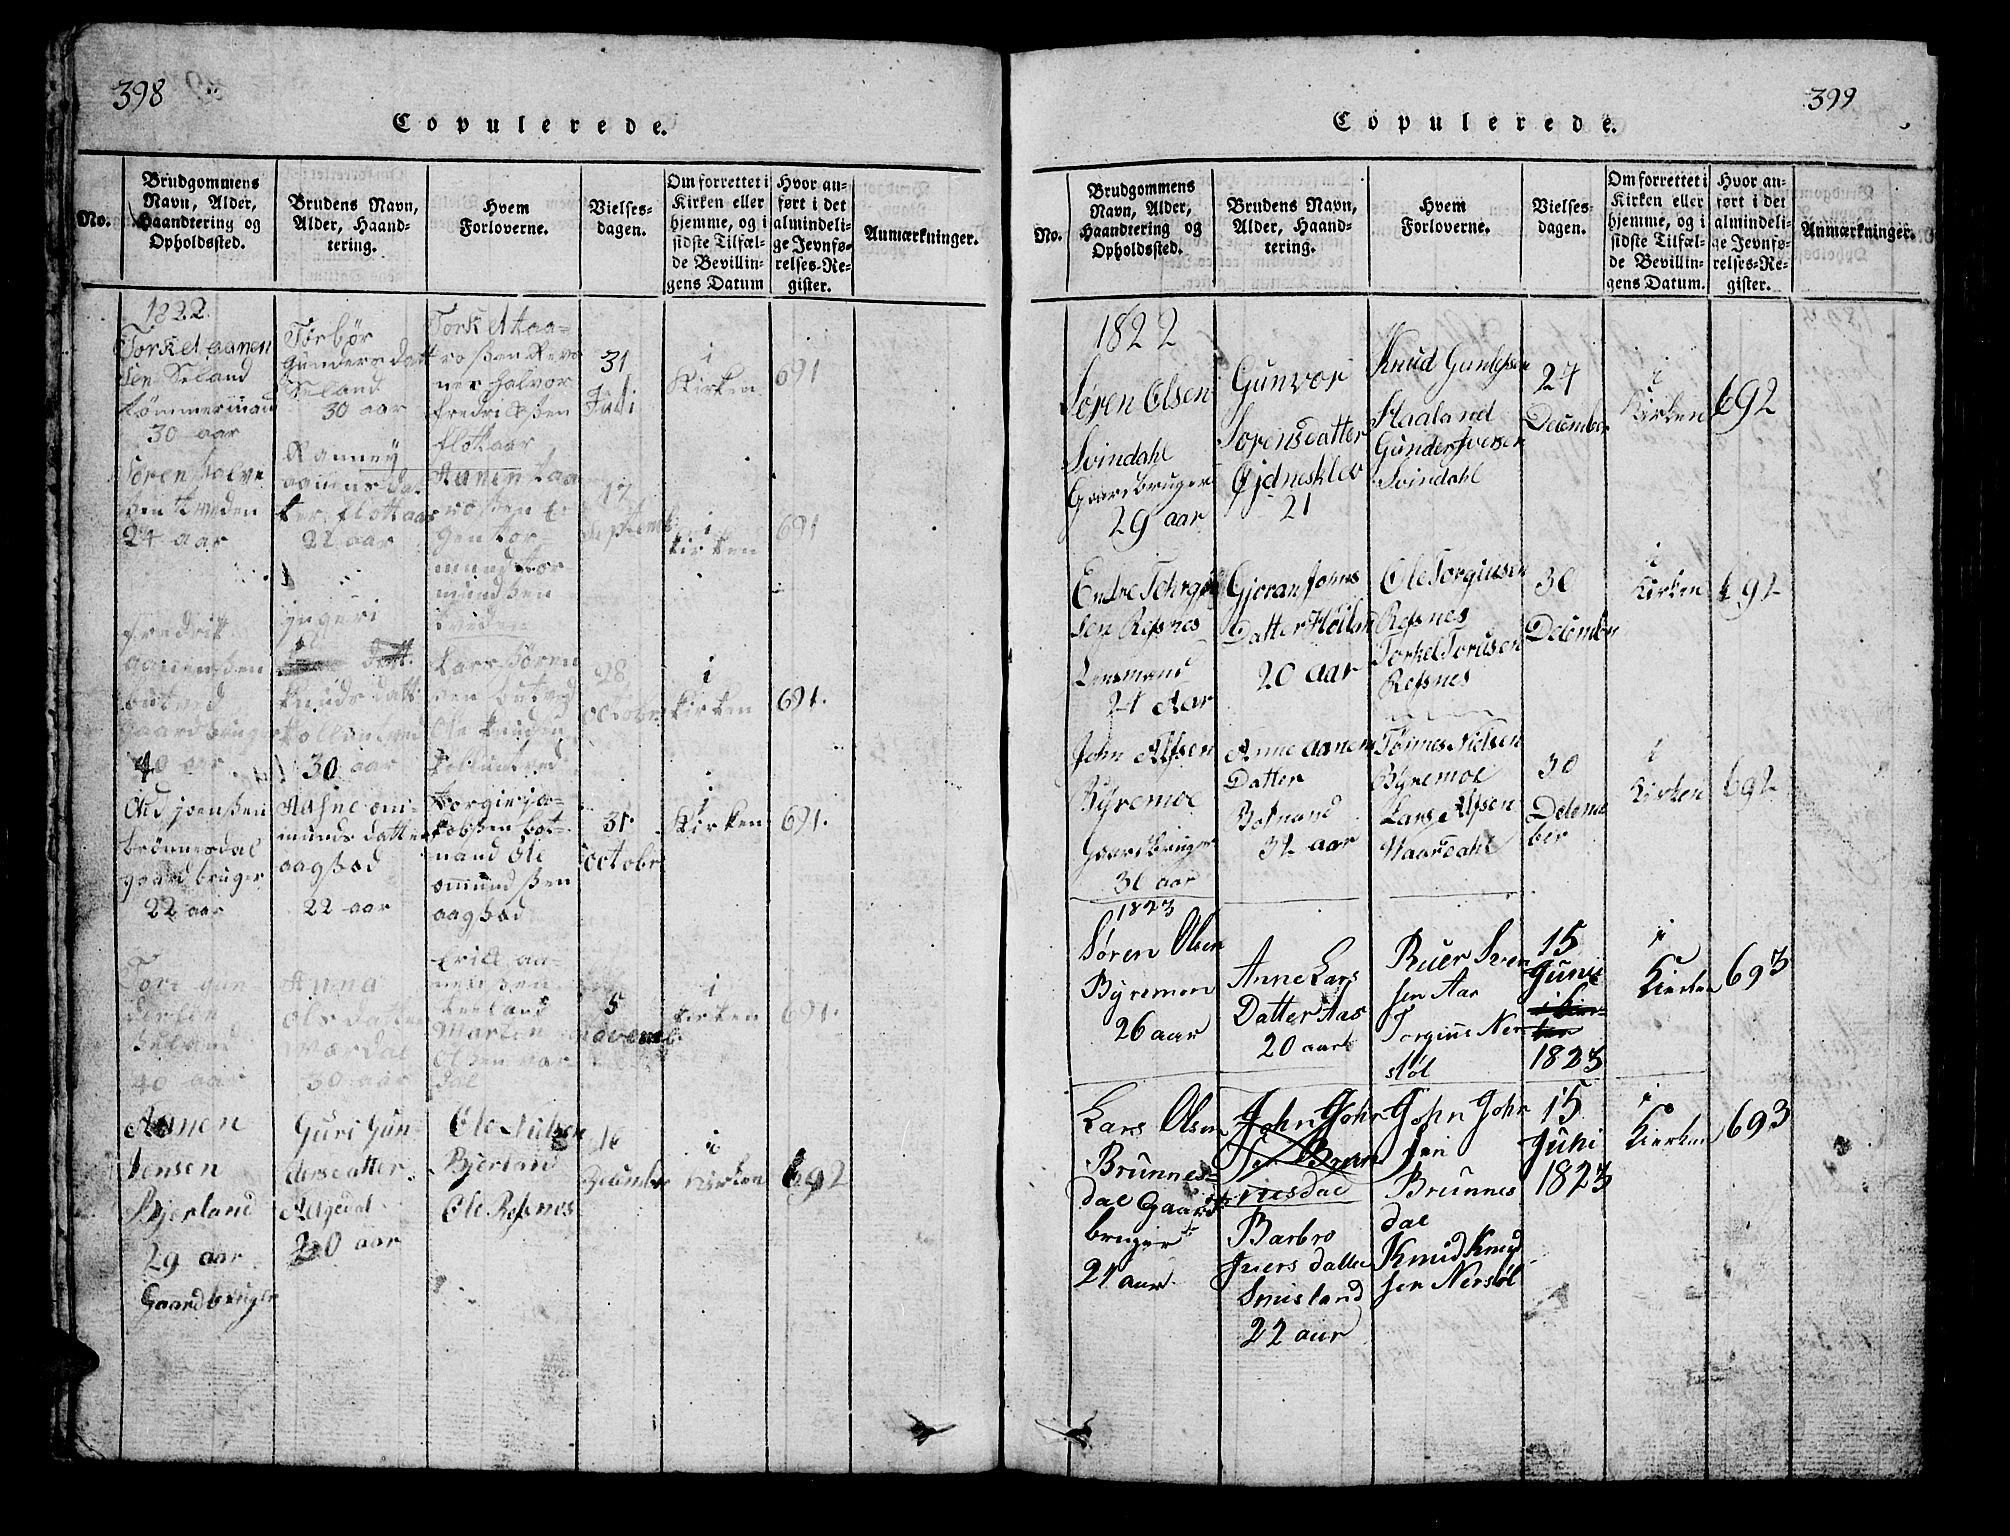 398
Copulerede.
No.
Brudgommens
Navn, Alder,
Haandtering og
Opholdssted.
Brudens Navn,
Alder, Haand-
tering.
Hvem
Forloverne.
Vielses-
dagen.
Om forrettet i
Kirken eller
hjemme, og i
sidste Tilfæl-
de Bevillin-
gens Datum
Hvor an-
ført i det
almindeli-
ge Jevnfø-
relses-Re-
gister.
Anmærkninger.
1822
Torkel aanen
sen Seland
tømmermand
30 aar
Torbør
Gundersdatt
Seland
30 aar
Torkel taa-
halvor
fredrikssen
flottaar
31
Juli
i
Kirken
691
Søren
24 aar
Ranney
aanens da
ter flottaar
22 aar
Aanen taa
17
i
kirken
691
fredrik
aanenssen
butved
gaardbruger
40 aar
jngeri
knuds datt
30 aar
Lars søren
sen butved
Ole knudsen
28
octobr
i
kirken
691.
Ole joenssen
brønnesdal
gaardbruger
22 aar
Aasne om
munds datter
aagsod
22 aar
Torgier ja-
kobssen bot-
nand Ole
ommundssen
aagsod
31
octobr
i
Kirken
691.
Tore gun-
dersen
Seland
40 aar
Anna
Ols datter
Wardal
30 aar
Erik aa-
nenssen
Marten
Olssen war
dal
5
november
i
kirken
691.
Aanen
Jensen
Bjerland
29 aar
Gaardbruger
Guri Gun
dersdatter
Aalgedal
20 aar
Ole Nilsen
Bjerland
Ole Refsnes
16
December
i
Kirken
692
399
Copulerede.
No.
Brudgommens
Navn, Alder,
Haandtering og
Opholdssted.
Brudens Navn,
Alder, Haand-
tering.
Hvem
Forloverne.
Vielses-
dagen.
Om forrettet i
Kirken eller
hjemme, og i
sidste Tilfæl-
de Bevillin-
gens Datum.
Hvor an-
ført i det
almindeli-
ge Jevnfø-
relses-Re-
gister.
Anmærkninger.
1822
Søren Olsen
Svindahl
Gaardbruger
29 aar
Gunvor
Sorensdatter
Øjdnesklev
21
Knud Gunlefsen
Staaland
Gunder Iversen
Svindahl
24
December
i
Kirken
692
Endre Torgius
sen Refsnes
Lensmand
24 Aar
Gjoran Johns
Datter Høiland
20 aar
Ole Torgiusen
Refsnes
Torkel Torusen
Refsnes
30
December
i
Kirken
692
John Alfsen
Byremoe
Gaardbruger
30 aar
Anne Aanens
Datter
Botnand
32 aar
Tønnes Nielsen
Byremoe
Lars Alfsen
Haardahl
30
Decem
ber
i
Kirken
692
1823
Søren Olsen
Byremon
26 aar
Anne Lars
Datter Aas
20 aar
Ruer Sven
sen Aas
Torgius Ner
støl
15
Juni
i Kir-
ken
1823
i
Kierken
693
Lars Olsen
Brunnes-
dal Gaard
bruger
21 aar
John John
sen Brun
nesdal
Barbro
Juers datter
Smisland
22 aar
John John
sen
Brunnes
dal
Knud Knud
sen Nerstøl
15
Juni
1823
i
Kierken
693